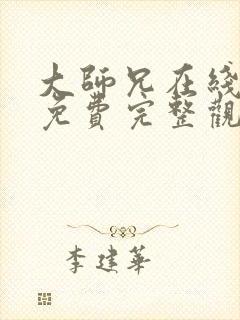 大師兄在綫
免費完整觀
李建華